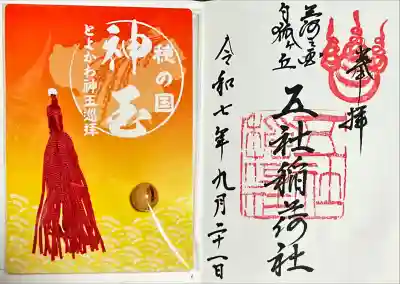 穂の国
神玉
とよかわ神玉巡拝
奉拝
白狐ヶ丘
五社稲荷社
令和七年九月二十一日